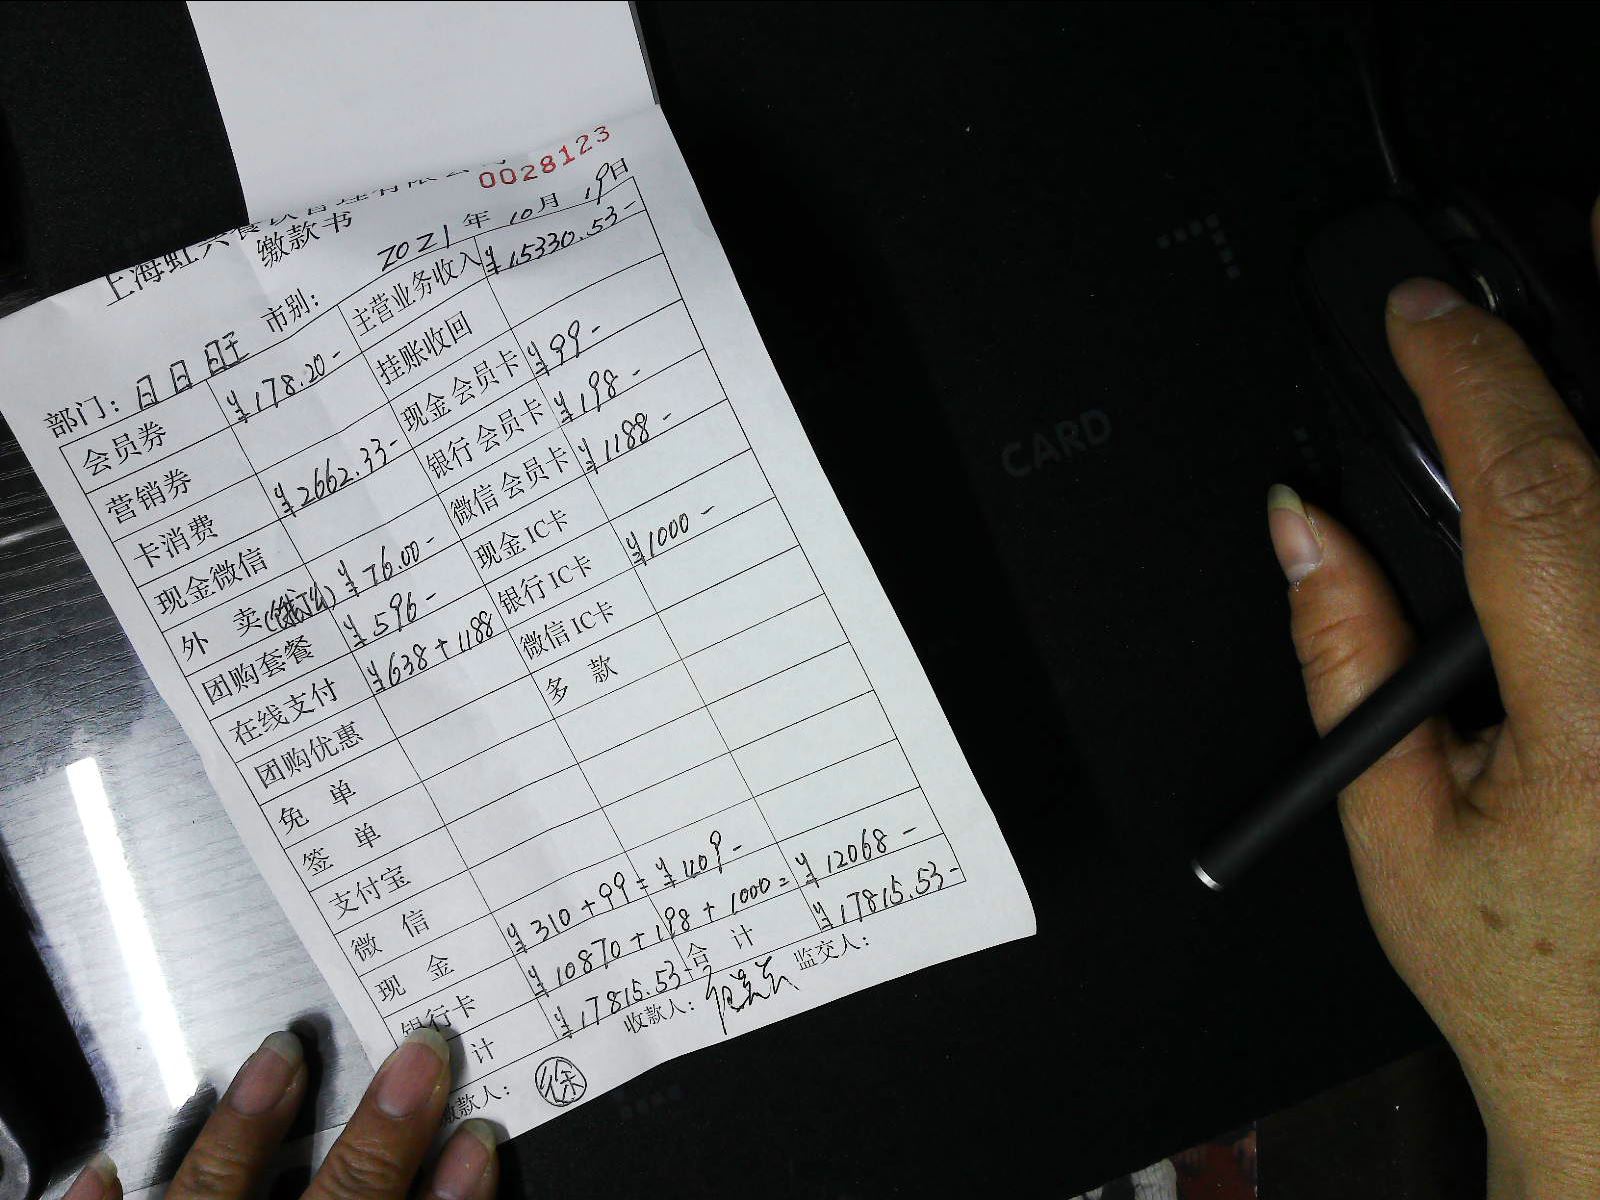 0028123
缴款书
2021年10月19日
部门：日日旺 市别：
会员券 ¥178.20- 主营业务收入 ¥15330.53-
营销券 挂账收回
卡消费 ¥2662.33- 现金会员卡 ¥99-
现金微信 银行会员卡 ¥198-
外 卖 ¥76.00- 微信会员卡 ¥1188-
团购套餐 ¥596- 现金IC卡
在线支付 ¥638+1188 银行IC卡 ¥1000-
团购优惠 微信IC卡
免 单 多 款
签 单
支付宝
微 信
现 金 ¥310+99=¥409-
银行卡 ¥10870+198+1000=¥12068-
计 ¥17815.53- 合 计 ¥17815.53-
缴款人：徐 收款人： 监交人：
CARD